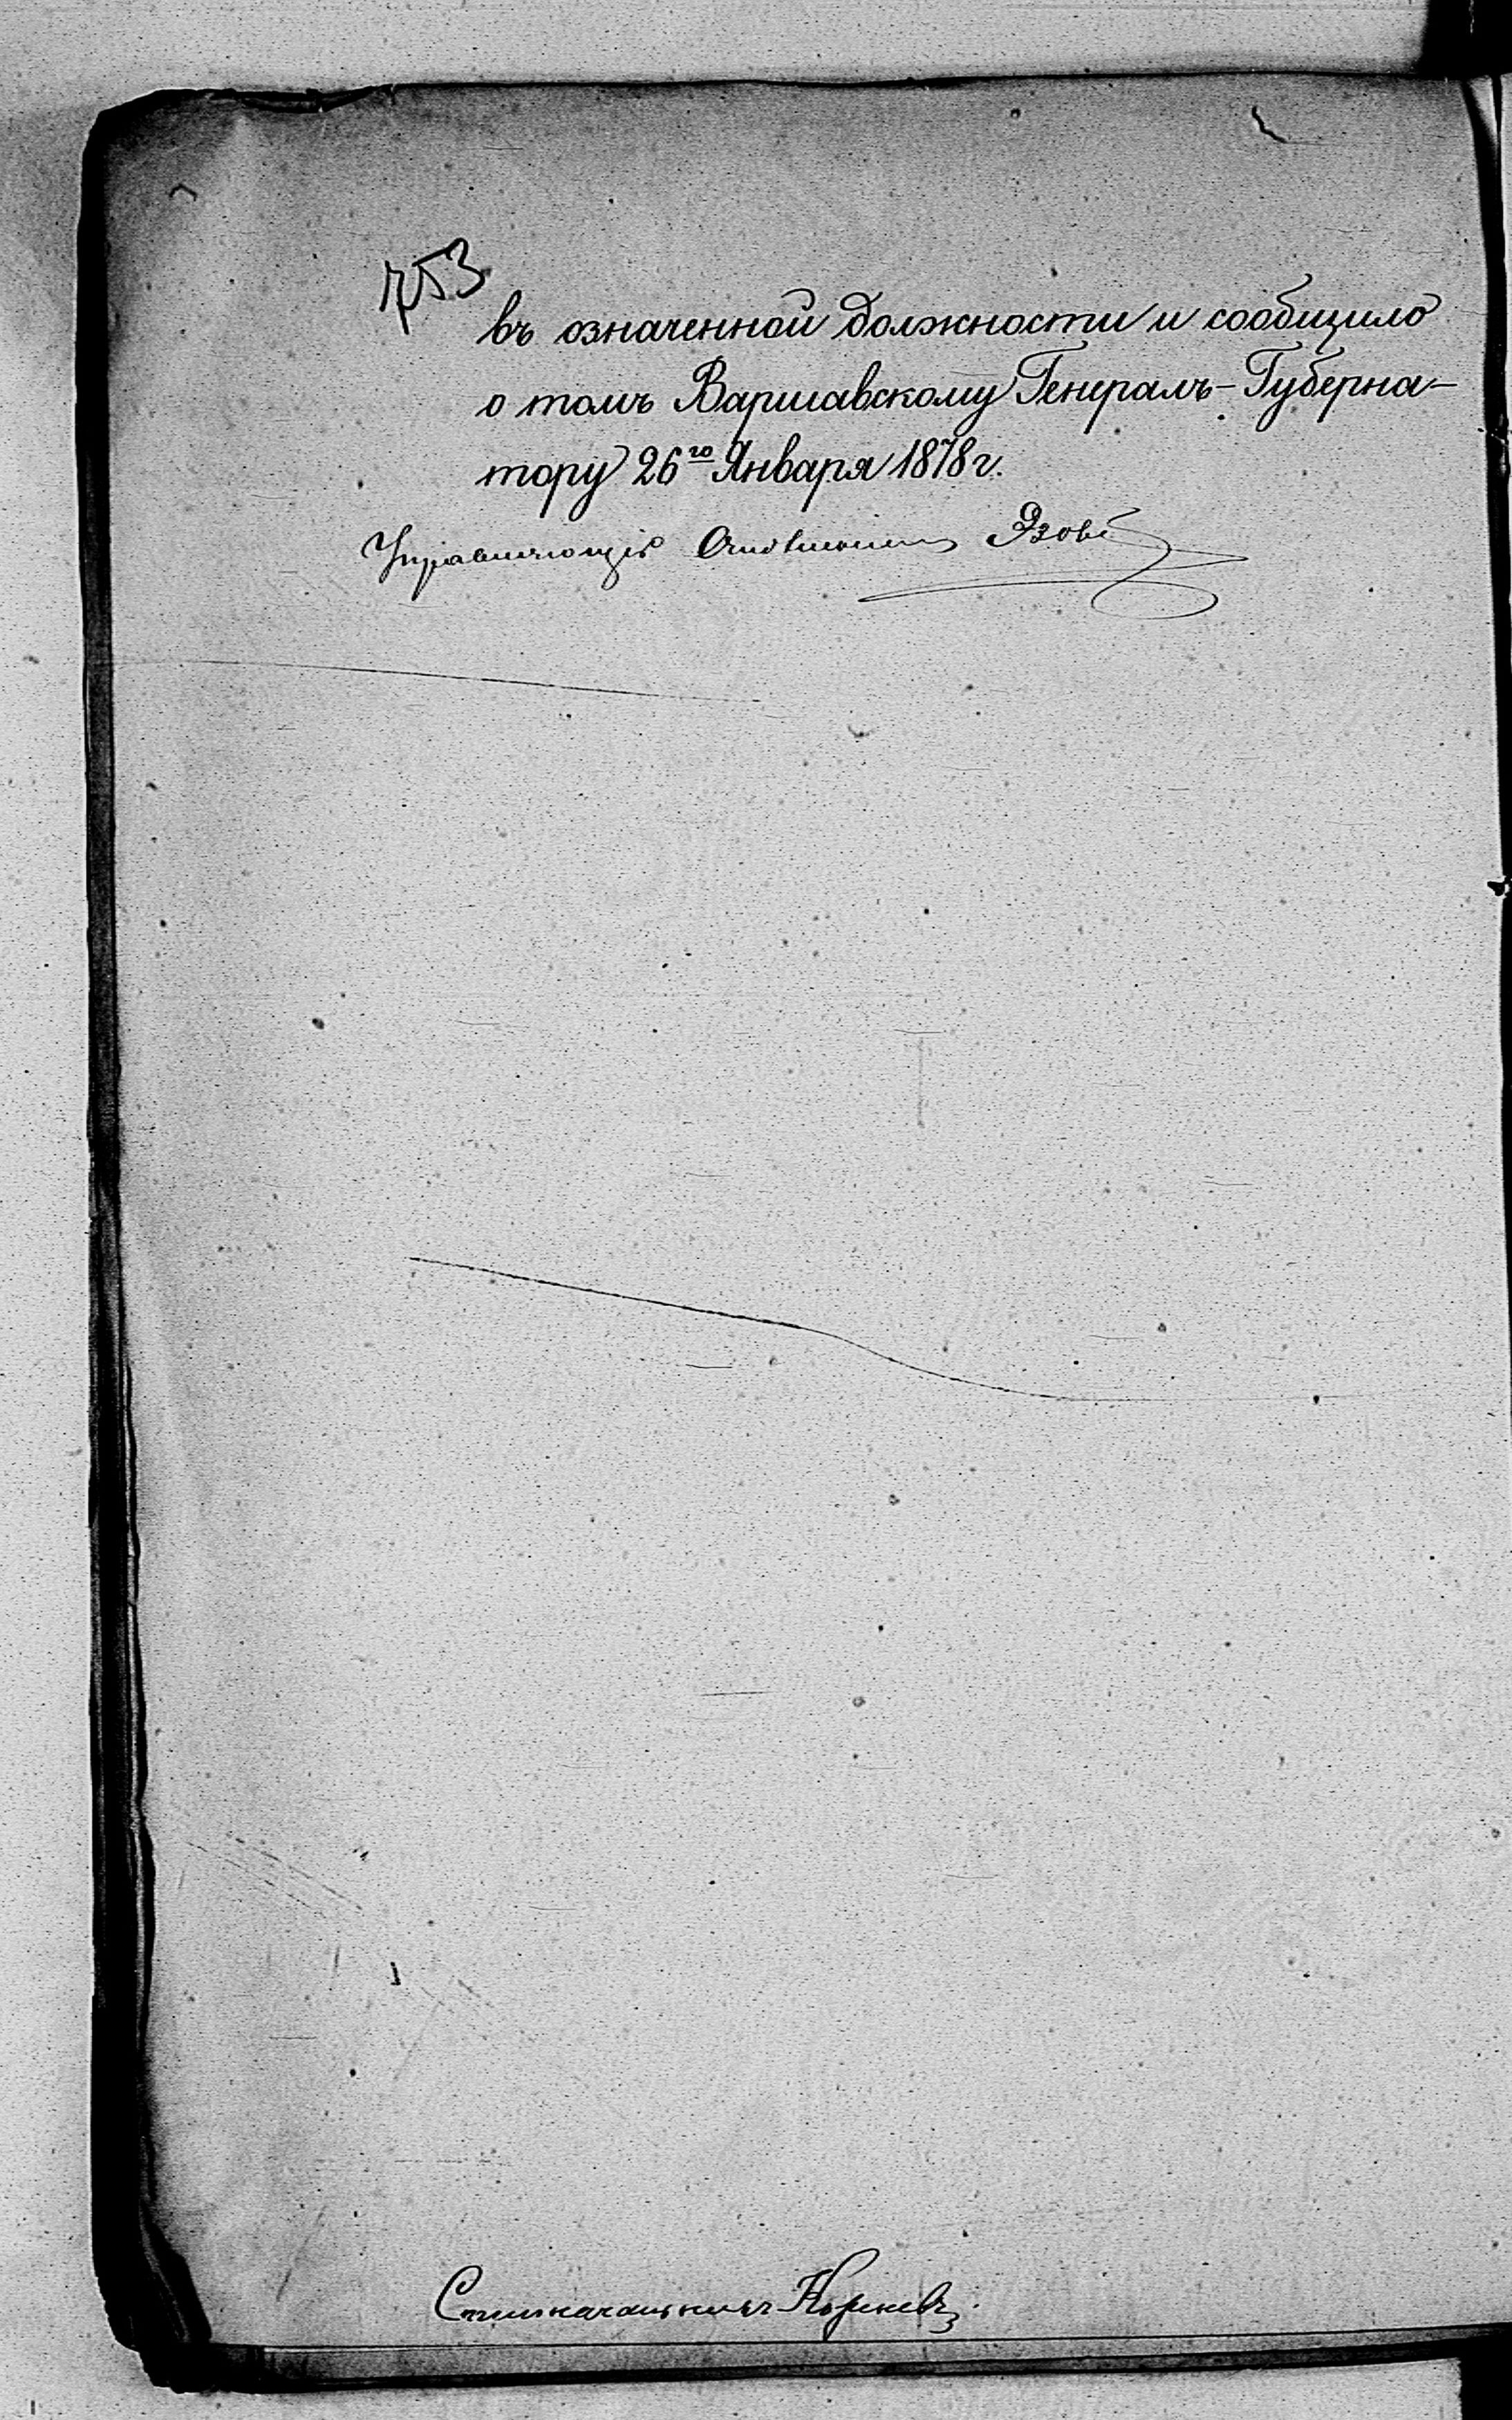 753
въ означенной должности и сообщило
о томъ Варшавскому Генералъ-Губерна-
тору 26го Января 1878 г.
Управляющій Отдѣленіемъ Эзовъ
Столоначальникъ